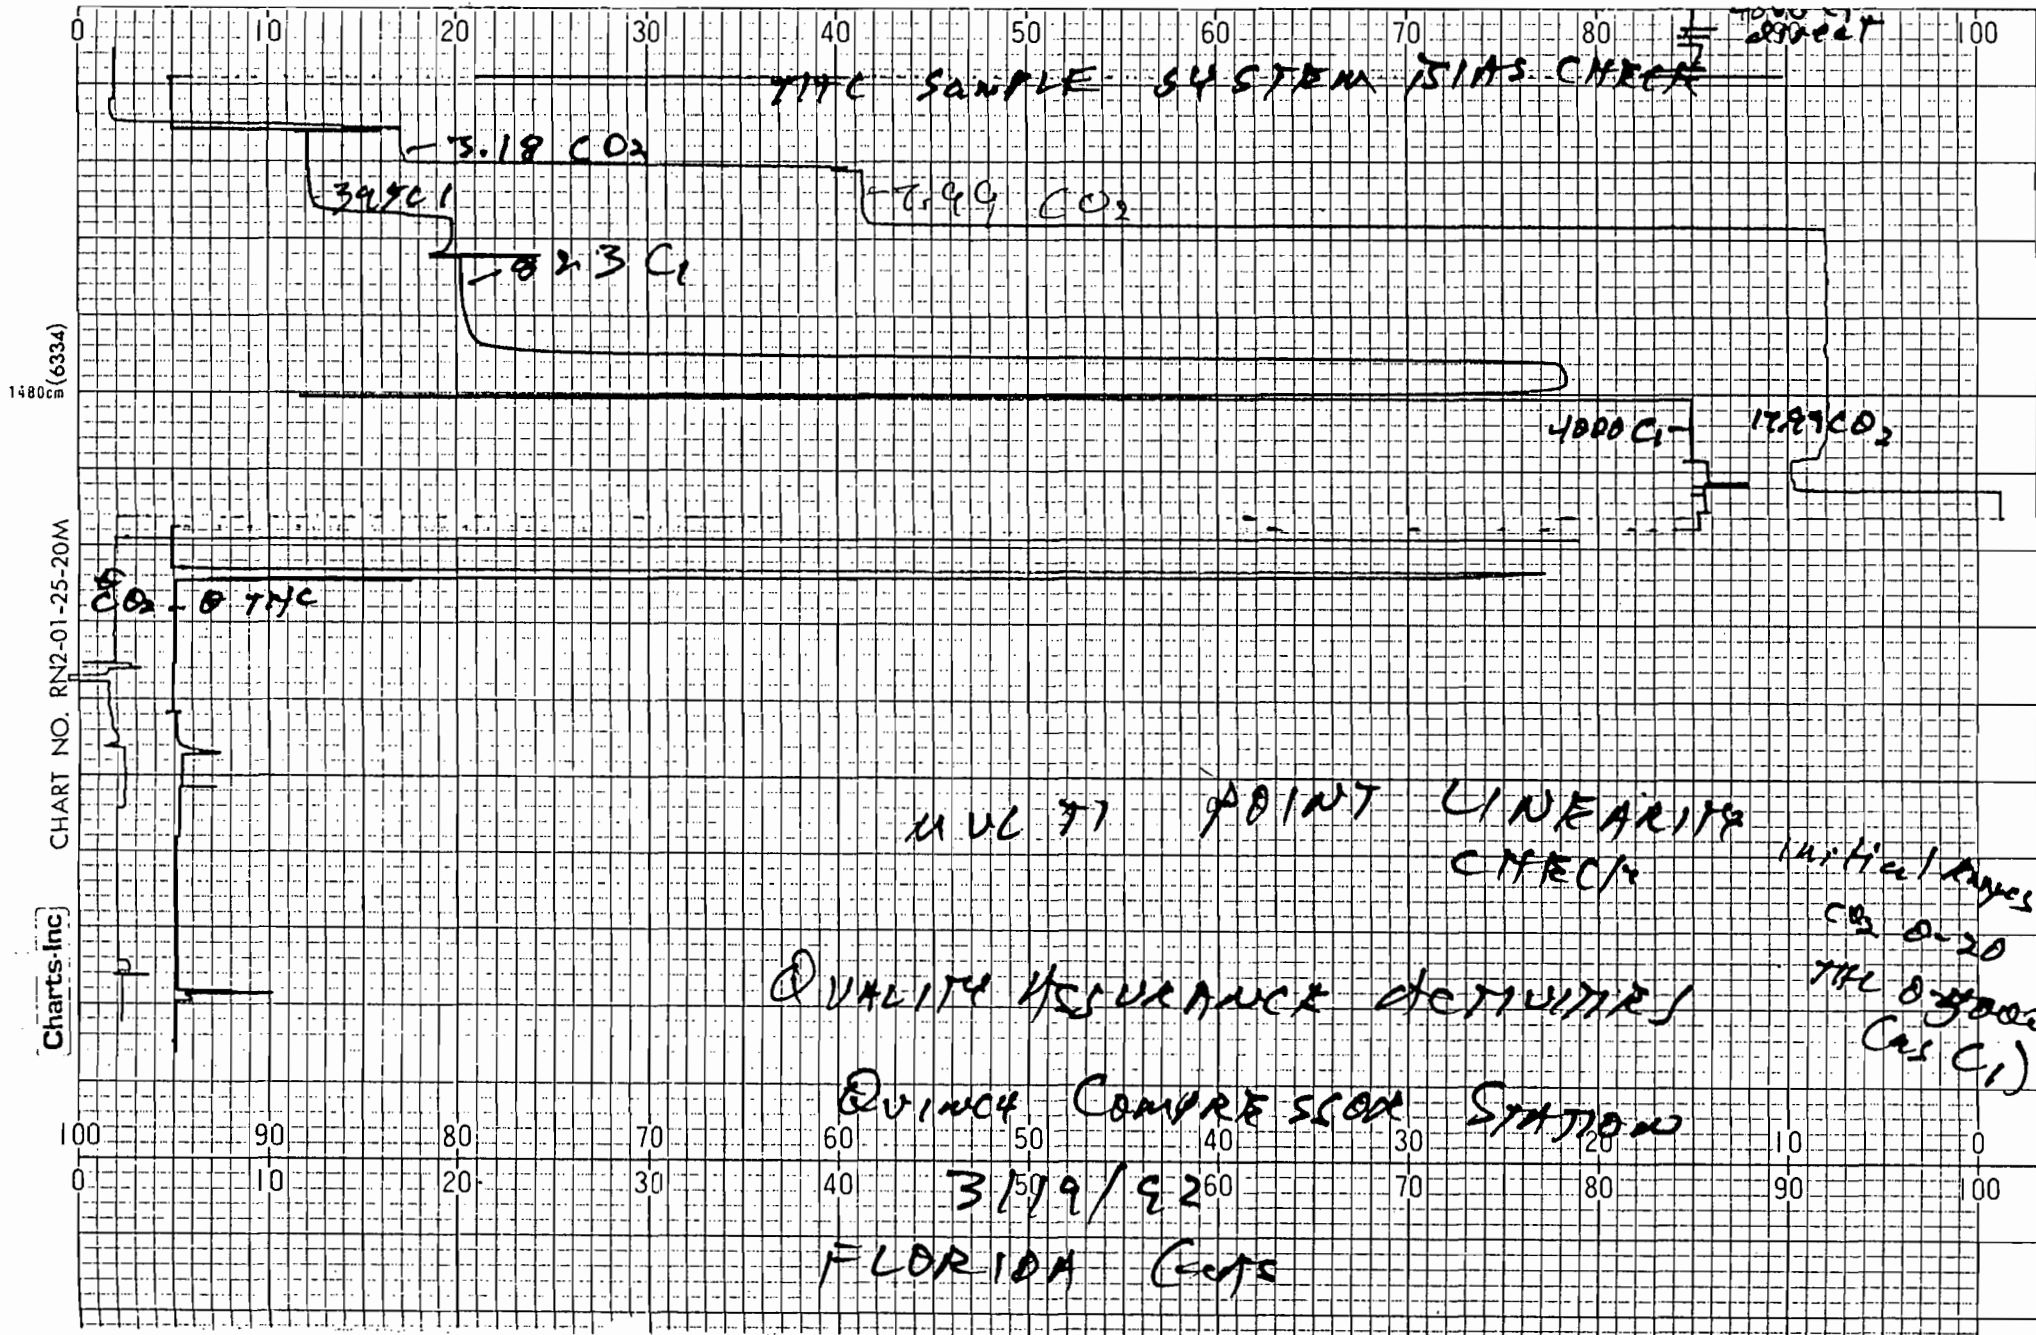 0 10 20 30 40 50 60 70 80 100
direct
THC SAMPLE SYSTEM BIAS CHECK
3.18 CO2
7.99 CO2
823 C1
1480cm (6334)
4000 C1
17.99 CO2
CO2 - 0 THC
CHART NO. RN2-01-25-20M
MULTI POINT LINEARITY
CHECK
Initial Ranges
CO2 0-20
THC
(as C1)
Charts-Inc
QUALITY ASSURANCE ACTIVITIES
QUINCY COMPRESSOR STATION
100 90 80 70 60 50 40 30 20 10 0
0 10 20 30 40 50 60 70 80 90 100
3/19/92
FLORIDA GAS